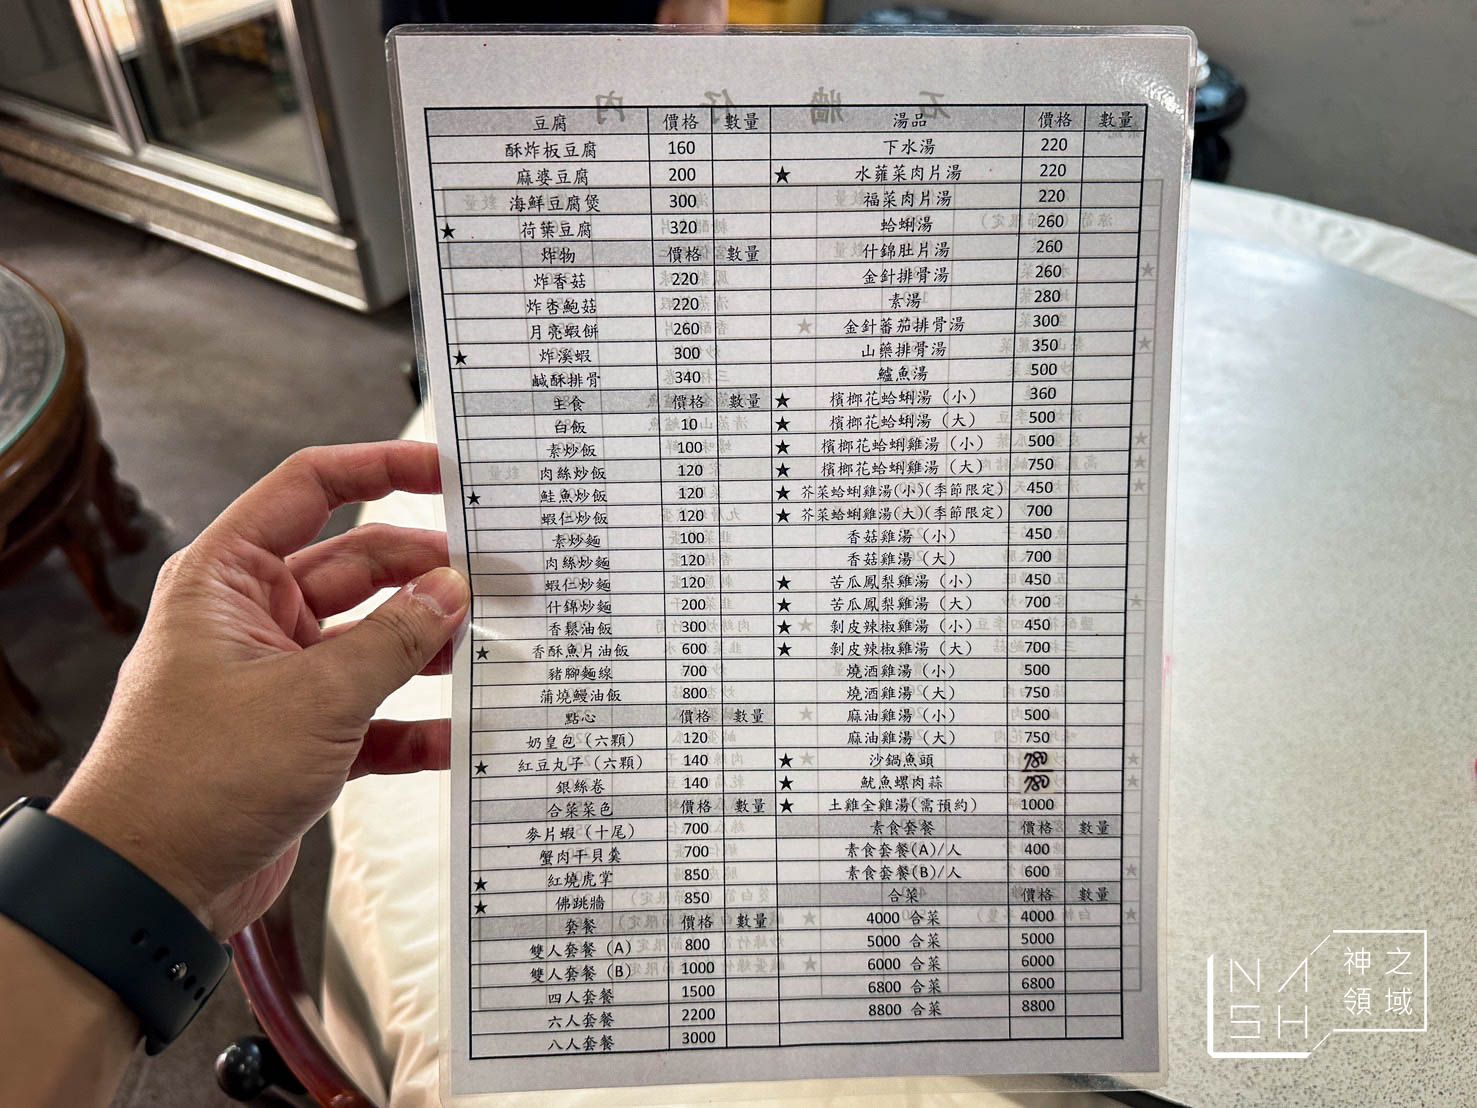 豆腐 價格 數量
酥炸板豆腐 160
麻婆豆腐 200
海鮮豆腐煲 300
★ 荷葉豆腐 320
炸物 價格 數量
炸香菇 220
炸杏鮑菇 220
月亮蝦餅 260
★ 炸溪蝦 300
鹹酥排骨 340
主食 價格 數量
白飯 10
素炒飯 100
肉絲炒飯 120
★ 鮭魚炒飯 120
蝦仁炒飯 120
素炒麵 100
肉絲炒麵 120
蝦仁炒麵 120
什錦炒麵 200
香鬆油飯 300
★ 香酥魚片油飯 600
豬腳麵線 700
蒲燒鰻油飯 800
點心 價格 數量
奶皇包（六顆） 120
★ 紅豆丸子（六顆） 140
銀絲卷 140
合菜菜色 價格 數量
麥片蝦（十尾） 700
蟹肉干貝羹 700
★ 紅燒虎掌 850
★ 佛跳牆 850
套餐 價格 數量
雙人套餐（A） 800
雙人套餐（B） 1000
四人套餐 1500
六人套餐 2200
八人套餐 3000
湯品 價格 數量
下水湯 220
★ 水蕹菜肉片湯 220
福菜肉片湯 220
蛤蜊湯 260
什錦肚片湯 260
金針排骨湯 260
素湯 280
金針蕃茄排骨湯 300
山藥排骨湯 350
鱸魚湯 500
★ 檳榔花蛤蜊湯（小） 360
★ 檳榔花蛤蜊湯（大） 500
★ 檳榔花蛤蜊雞湯（小） 500
★ 檳榔花蛤蜊雞湯（大） 750
★ 芥菜蛤蜊雞湯(小)(季節限定) 450
★ 芥菜蛤蜊雞湯(大)(季節限定) 700
香菇雞湯（小） 450
香菇雞湯（大） 700
★ 苦瓜鳳梨雞湯（小） 450
★ 苦瓜鳳梨雞湯（大） 700
★ 剝皮辣椒雞湯（小） 450
★ 剝皮辣椒雞湯（大） 700
燒酒雞湯（小） 500
燒酒雞湯（大） 750
麻油雞湯（小） 500
麻油雞湯（大） 750
★ 沙鍋魚頭 780
★ 魷魚螺肉蒜 780
★ 土雞全雞湯(需預約) 1000
素食套餐 價格 數量
素食套餐(A)/人 400
素食套餐(B)/人 600
合菜 價格 數量
4000 合菜 4000
5000 合菜 5000
6000 合菜 6000
6800 合菜 6800
8800 合菜 8800
NASH
神之領域